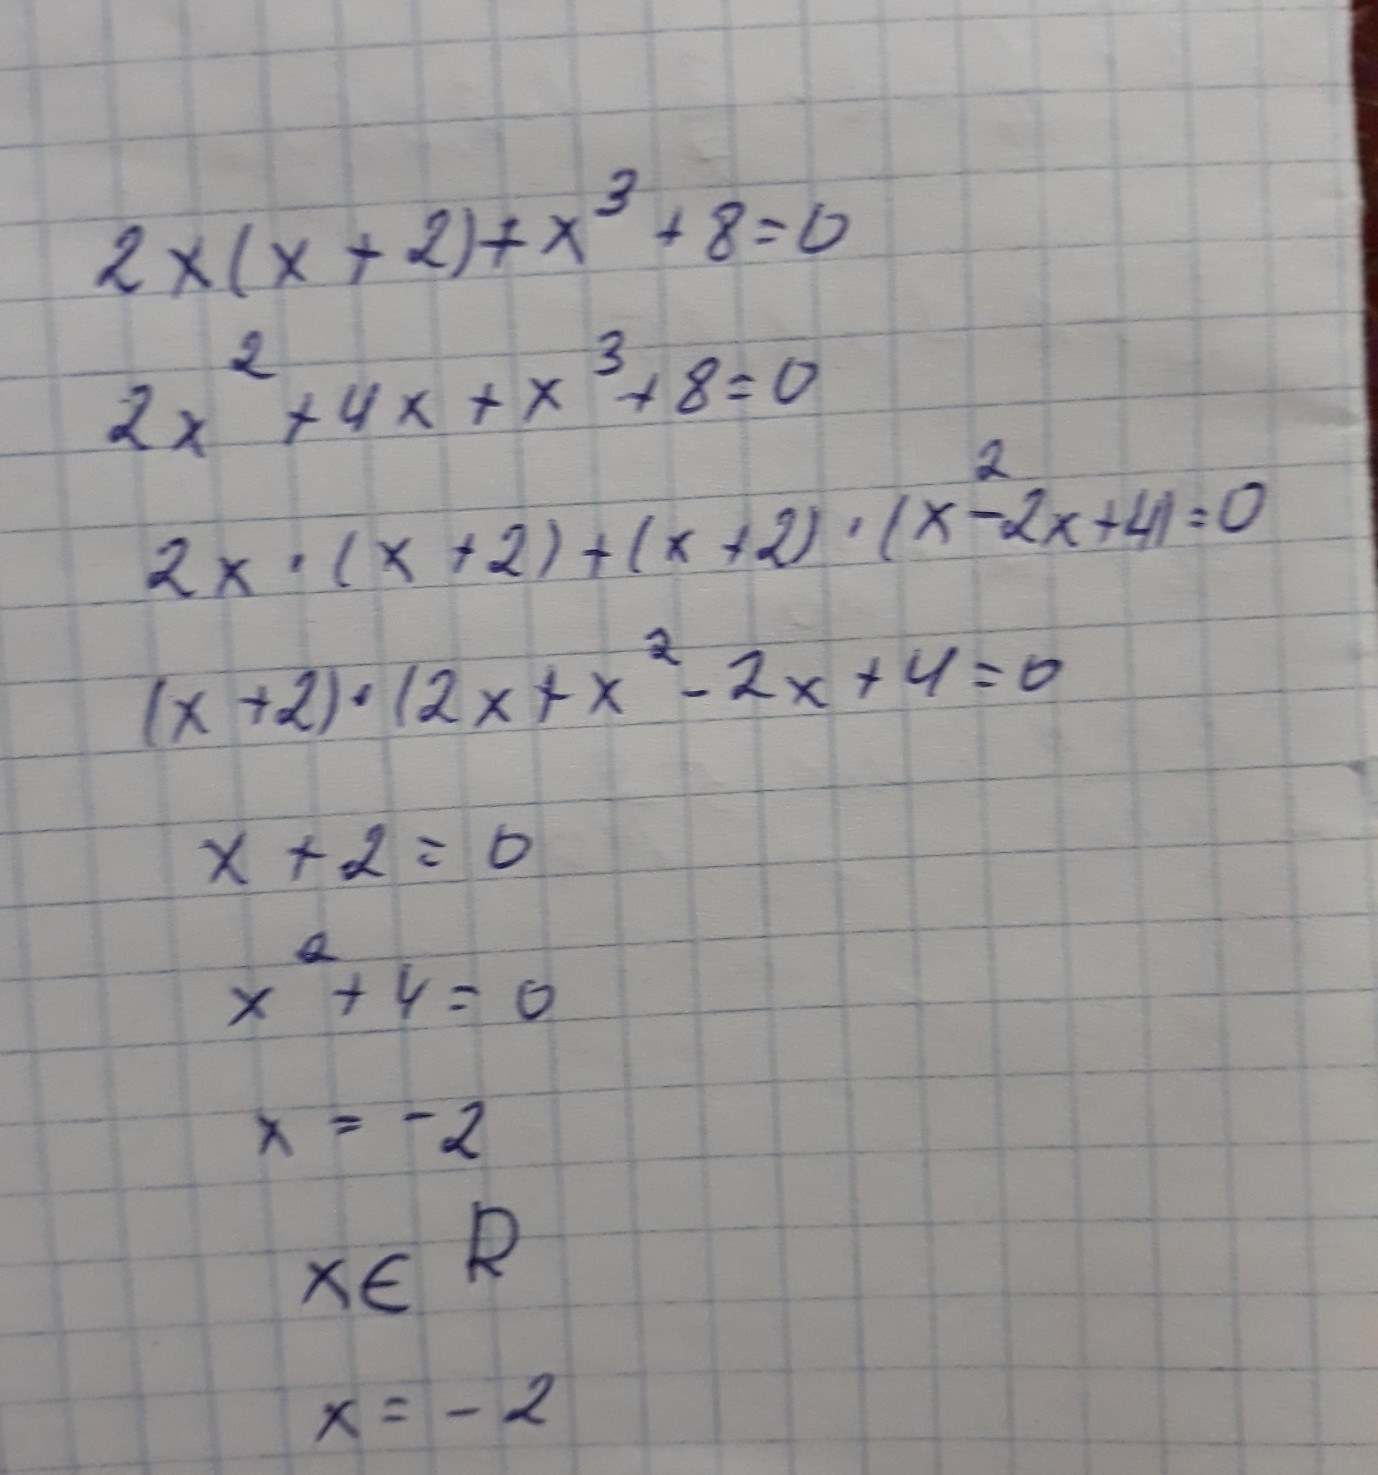 2x(x+2)+x³+8=0
2x²+4x+x³+8=0
2x·(x+2)+(x+2)·(x²-2x+4)=0
(x+2)·(2x+x²-2x+4=0
x+2=0
x²+4=0
x=-2
x∈R
x=-2